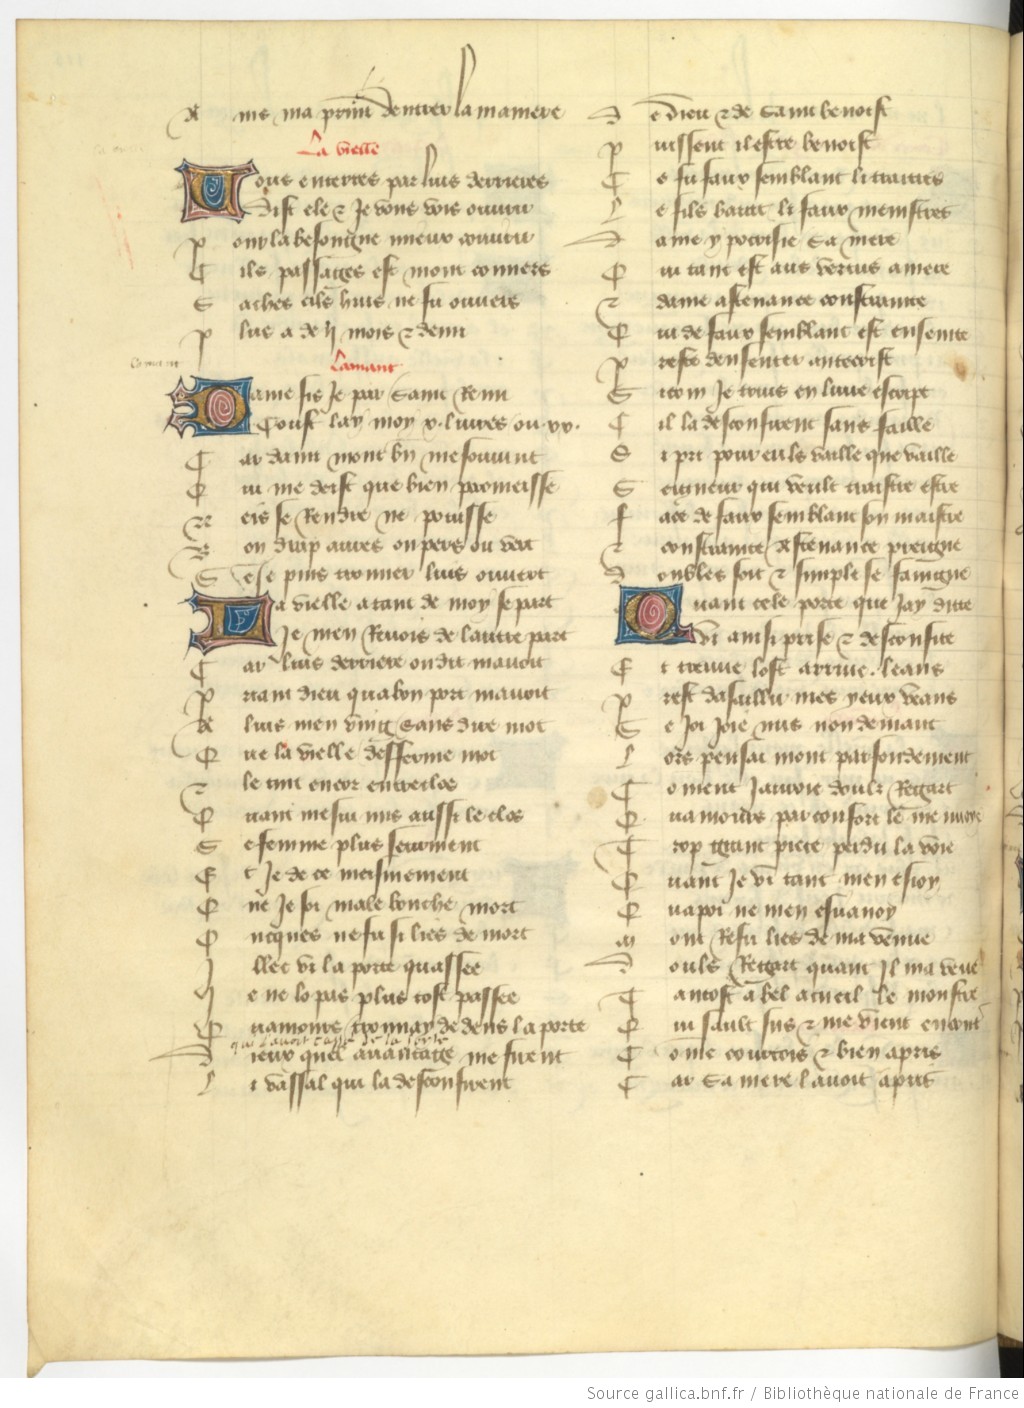 A ms ma prim dentrer la maniere
La vielle
Vous enterres par luis derrieres
Dist ele & Je vous vois ouvrir
P our la besongne mieux couvrir
C ils passages est mont couvers
S aches cils huis ne fu ouvers
P lus a de ii mois & demi
Lamant
Dame fis Je par Saint Remi
Coust lay moy x. livres ou .xx.
C ar dami mont bn me souvint
Q ui me deist que bien promeisse
M eis se Rendre ne poisse
B on drap aures ou pers ou vert
S e Je puis trouver luis ouvert
La vielle a tant de moy se part
Je men Revois de lautre part
C ar luis derriere ou dit mavoit
P riant dieu qua bon port mavoit
A luis men ving Sans dire mot
Q ue la vielle desferme mot
& le tint encor entreclos
Q uant me fui mis aussi le clos
S e femme plus seurment
E t Je de ce meismement
Q ue Je soi male bouche mort
O ncques ne fu si lies de mort
I llec vi la porte quassee
J e ne lo pas plus tost passee
Q uamours trouvay dedens la porte
D ieux quel avantage me firent
L i vassal qui la desconfirent
D e dieu & de Saint benoist
P uissent il estre benoist
C e fu faux semblant li traitres
L e fils barat li faux menistres
D ame ypocrisie Sa mere
Q ui tant est aus vertus amere
& dame astenance constrainte
Q ui de faux semblant est ensainte
P reste densenter antecrist
S icom Je truis en livre escript
C il la desconfirent sans faille
S i pri pour euls vaille que vaille
S eigneur qui veult traistre estre
F ace de faux semblant son maistre
& constrainte Astenance preigne
D oubles soit & simple se faingne
Quant cele porte que Jay ditte
Vi ainsi prise & desconfite
E t treuve lost arrive leans
P rest dasaillir mes yeux veans
S e Joi Joie nus non demant
L ors pensai mont parfondement
C oment Jauroie doulz Regart
Q uamours par confort le me
T rop grant piece perdu la voie
Q uant Je vi tant men esioy
Q uapoi ne men esvanoy
M ont Refu lies de ma venue
D ouls Regart quant Il ma veue
T antost a bel acueil le monstre
Q ui sault sus & me vient encont
C ome courtois & bien apris
C ar Sa mere lavoit apris